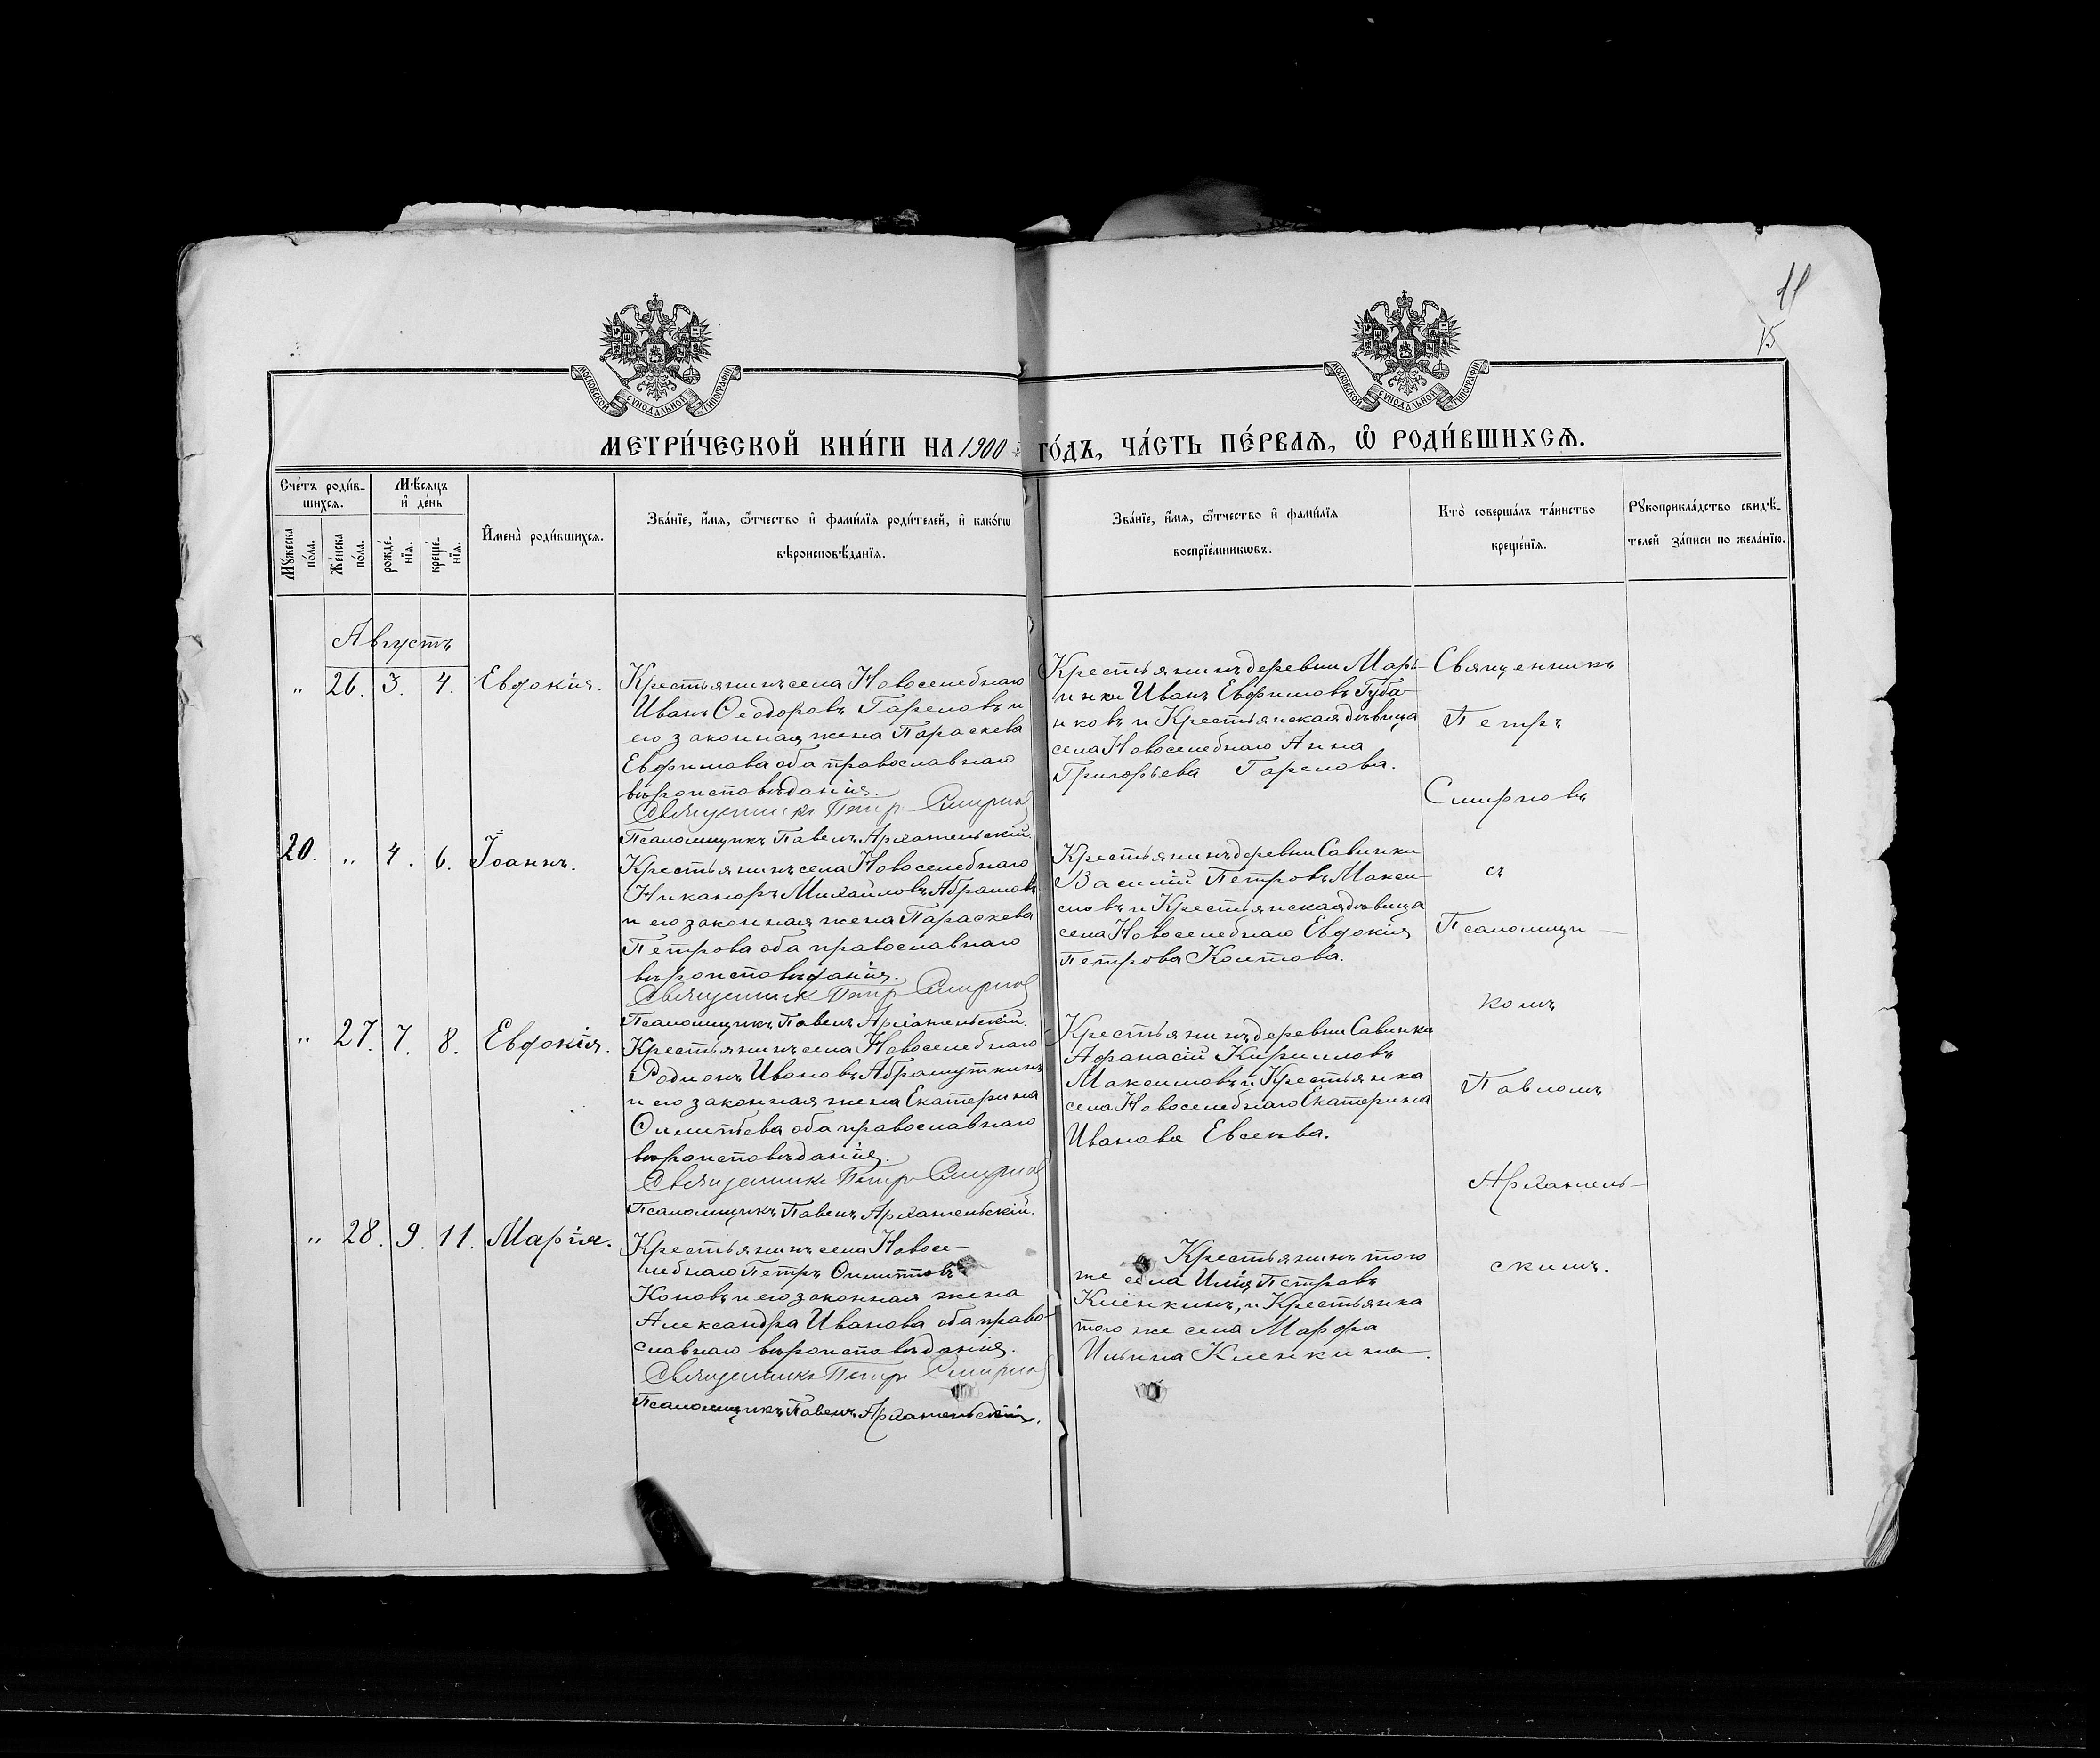 11
15
МОСКОВСКОЙ СУНОДАЛЬНОЙ ТИПОГРАФІИ
МОСКОВСКОЙ СУНОДАЛЬНОЙ ТИПОГРАФІИ
МЕТРИ́ЧЕСКОЙ КНИ́ГИ НА 1900 ГО́ДЪ, ЧА́СТЬ ПЕ́РВАѦ, Ѡ҆ РОДИ́ВШИХСѦ.
Сче́тъ роди́в-
шихсѧ.
Мꙋжеска по́ла.
Же́нска по́ла.
Мѣ́сѧцъ
и҆ де́нь
рожде́-
нїѧ.
креще́-
нїѧ.
И҆мена̀ роди́вшихсѧ.
Зва́нїе, и҆́мѧ, ѻ҆́тчество и҆ фами́лїѧ роди́телей, и҆ како́гѡ
вѣроисповѣ́данїѧ.
Зва́нїе, и҆́мѧ, ѻ҆́тчество и҆ фами́лїѧ
воспрїе́мникѡвъ.
Кто̀ соверша́лъ та́инство
креще́нїѧ.
Рꙋкоприкла́дство свидѣ́-
телей за́писи по жела́нїю.
Августъ
" 26. 3. 4. Евдокія.
Крестьянинъ села Новоселебнаго
Иванъ Ѳеодоровъ Гареловъ и
его законная жена Параскева
Евфимова оба православнаго
вѣроисповѣданія.
Священникъ Петръ Смирнов
Псаломщикъ Павелъ Архангельскій.
Крестьянинъ деревни Марь-
инки Иванъ Евфимовъ Губа-
нковъ и Крестьянская дѣвица
села Новоселебнаго Анна
Григорьева Гарелова.
20. " 4. 6. Іоаннъ.
Крестьянинъ села Новоселебнаго
Никаноръ Михайловъ Абрамовъ
и его законная жена Параскева
Петрова оба православнаго
вѣроисповѣданія.
Священникъ Петръ Смирнов
Псаломщикъ Павелъ Архангельскій.
Крестьянинъ деревни Савинки
Василій Петровъ Макси-
мовъ и Крестьянская дѣвица
села Новоселебнаго Евдокія
Петрова Коптова.
" 27. 7. 8. Евдокія.
Крестьянинъ села Новоселебнаго
Родионъ Ивановъ Абрамуткинъ
и его законная жена Екатерина
оба православнаго
вѣроисповѣданія.
Священникъ Петръ Смирнов
Псаломщикъ Павелъ Архангельскій.
Крестьянинъ деревни Савинки
Афанасій Кирилловъ
Максимовъ и Крестьянка
села Новоселебнаго Екатерина
Иванова Евсеева.
" 28. 9. 11. Марія.
Крестьянинъ села Новосе-
лебнаго Петръ
Коповъ и его законная жена
Александра Иванова оба право-
славнаго вѣроисповѣданія.
Священникъ Петръ Смирнов
Псаломщикъ Павелъ Архангельскій.
Крестьянинъ того
же села Илія Петровъ
Клёнкинъ, и Крестьянка
того же села Марфа
Ильина Кленкина.
Священникъ
Петръ
Смирновъ
съ
Псаломщи-
комъ
Павломъ
Архангель-
скимъ.